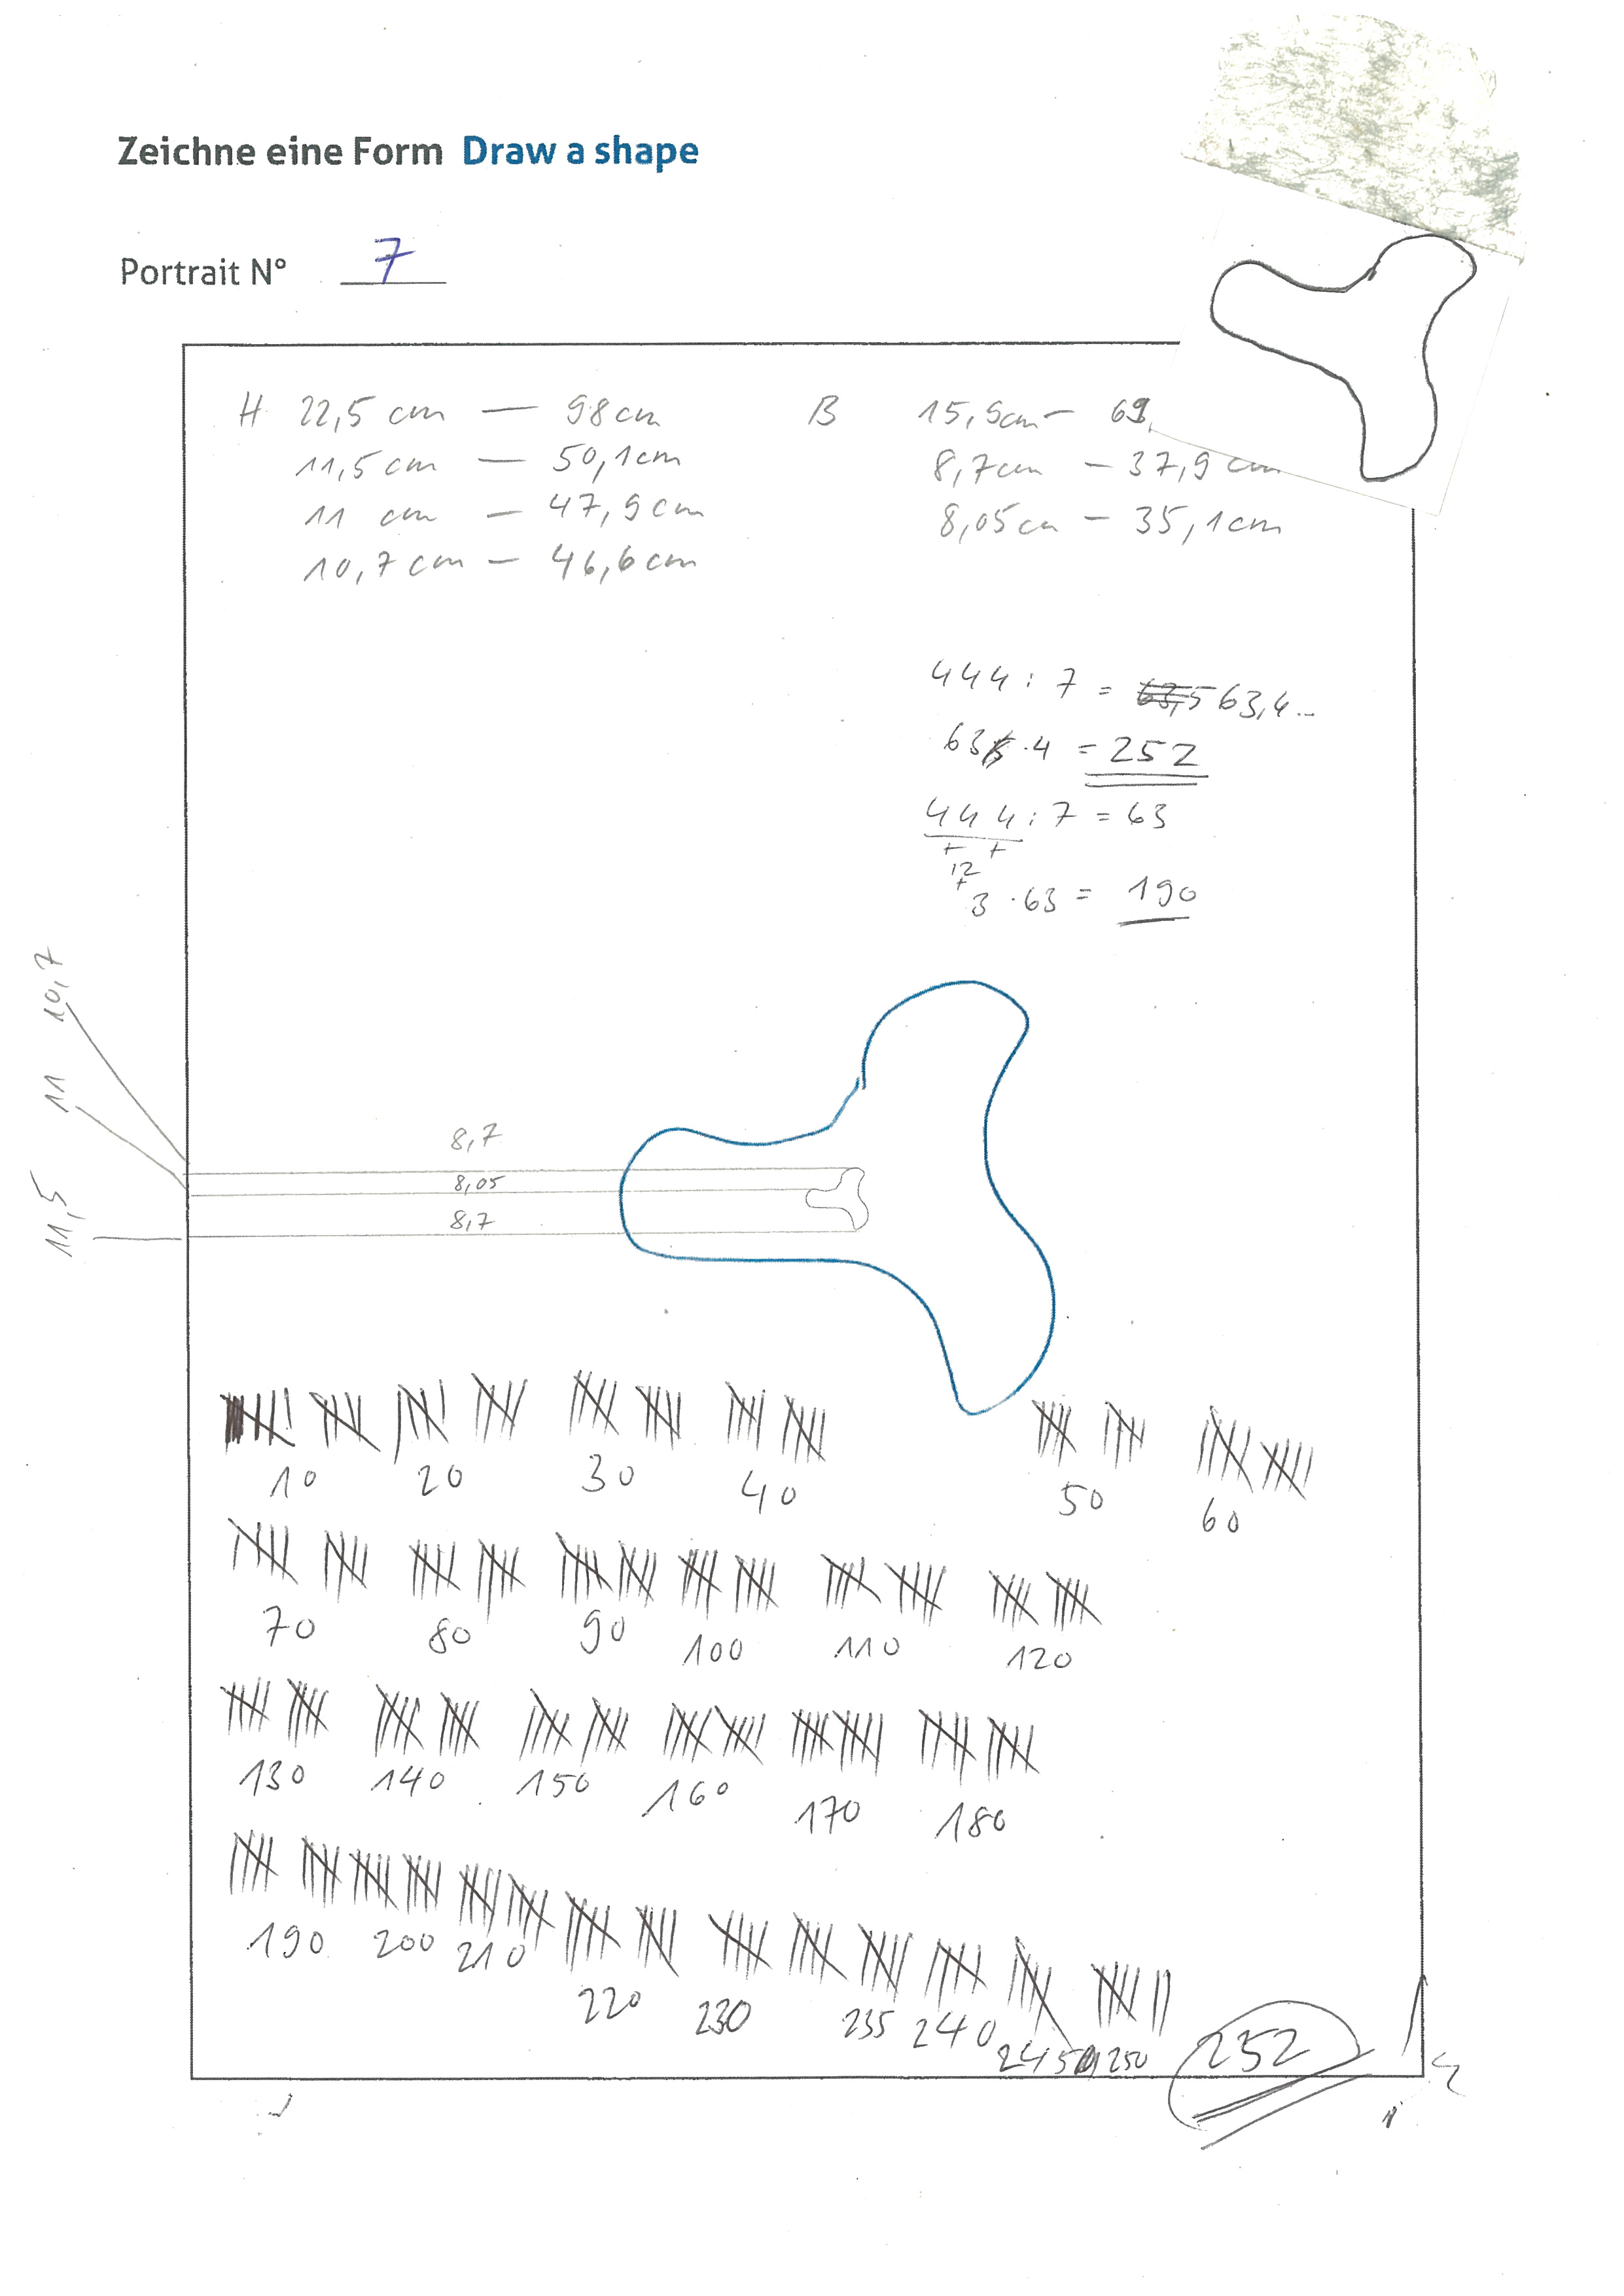 Zeichne eine Form Draw a shape
Portrait N° 7
H 22,5 cm — 98 cm
11,5 cm — 50,1 cm
11 cm — 47,9 cm
10,7 cm — 46,6 cm
B 15,9 cm — 69,
8,7 cm — 37,9 cm
8,05 cm — 35,1 cm
444 : 7 = 63,5 63,4..
63 · 4 = 252
444 : 7 = 63
+ +
12
+
3 · 63 = 190
10,7
11
11,5
8,7
8,05
8,7
10 20 30 40 50 60
70 80 90 100 110 120
130 140 150 160 170 180
190 200 210 220 230 235 240 245 250
252